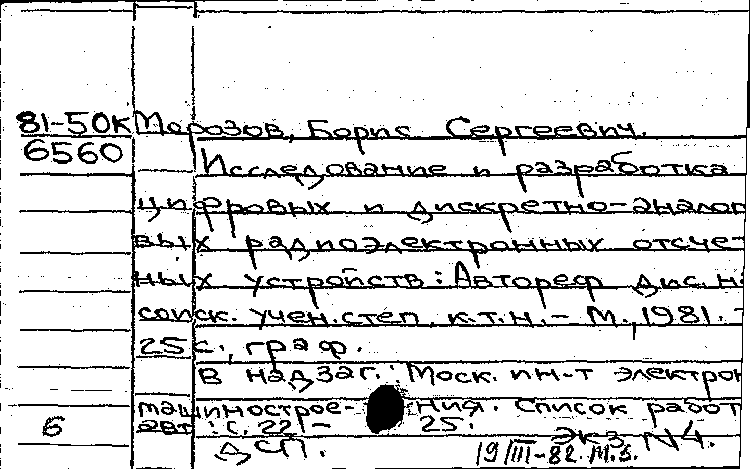 81-50К Морозов, Борис Сергеевич.
6560 Исследование и разработка
цифровых и дискретно-аналого
вых радиоэлектронных отсчет
ных устройств: Автореф дис. на
соиск. учен. степ. к.т.н. - М., 1981. -
25 с., граф.
В надзаг.: Моск. ин-т электрон
машинострое- ния. Список работ
6 авт: с. 22- 25.
ДСП. экз N4.
19/III-82. М.З.